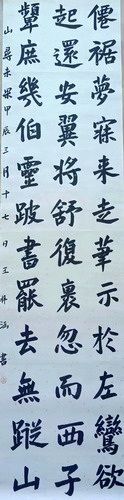 僊裾夢寐来走筆示於左鸞欲
起還安翼将舒復裹忽而西子
顰庶幾伯靈跛書罷去無蹤山
山尋未深甲辰三月十七日王
書